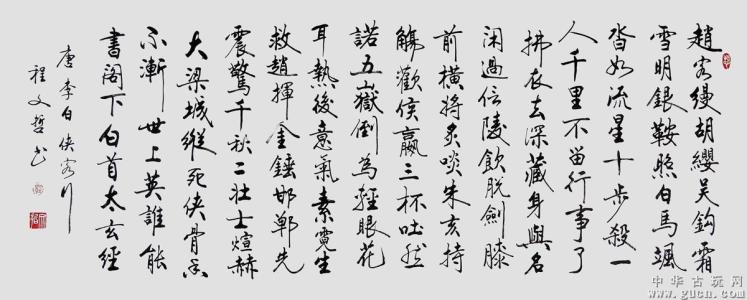 趙客縵胡纓吳鉤霜
雪明銀鞍照白馬颯
沓如流星十步殺一
人千里不留行事了
拂衣去深藏身與名
閑過信陵飲脫劍膝
前橫將炙啖朱亥持
觴勸侯嬴三杯吐然
諾五嶽倒為輕眼花
耳熱後意氣素霓生
救趙揮金錘邯鄲先
震驚千秋二壯士煊赫
大梁城縱死俠骨香
不慚世上英誰能
書閣下白首太玄經
唐李白俠客行
程文哲書
中華古玩网
www.gucn.com